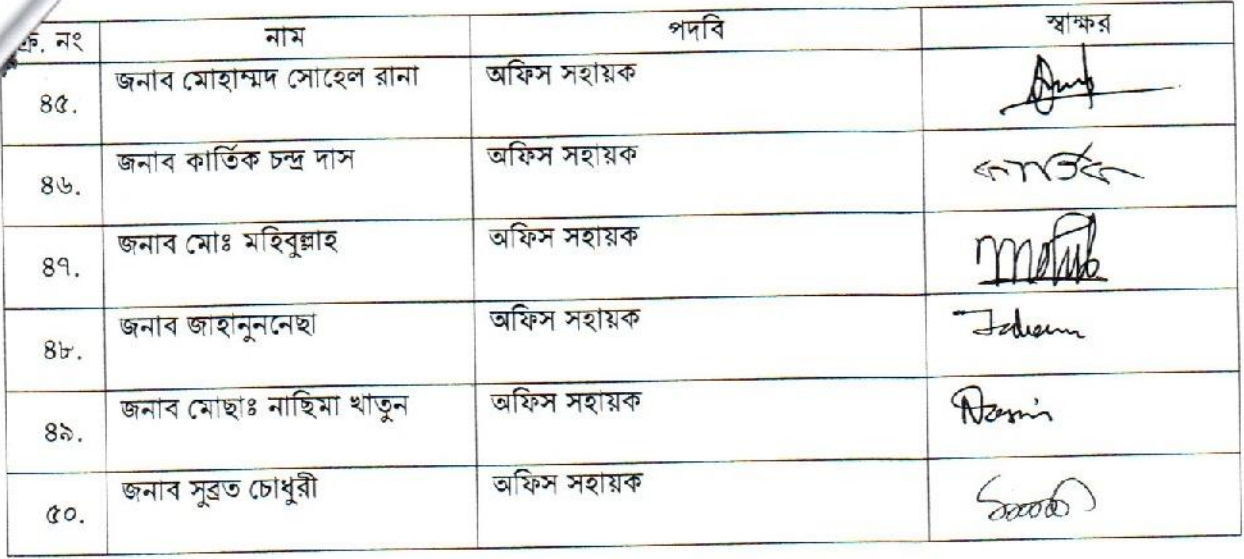 ক্র. নং নাম পদবি স্বাক্ষর
৪৫. জনাব মোহাম্মদ সোহেল রানা অফিস সহায়ক
৪৬. জনাব কার্তিক চন্দ্র দাস অফিস সহায়ক কার্তিক
৪৭. জনাব মোঃ মহিবুল্লাহ অফিস সহায়ক
৪৮. জনাব জাহানুননেছা অফিস সহায়ক
৪৯. জনাব মোছাঃ নাছিমা খাতুন অফিস সহায়ক
৫০. জনাব সুব্রত চৌধুরী অফিস সহায়ক